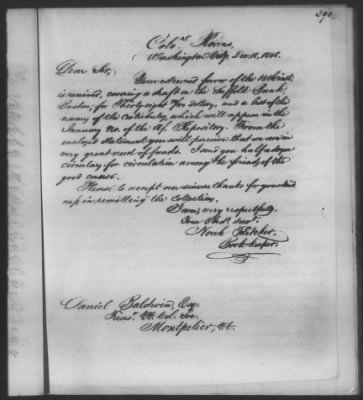 390
Colon. Rooms,
Washington City, Dec. 18, 1848.
Dear Sir,
Your esteemed favor of the 13th inst.
is received, covering a draft on the Suffolk Bank,
Boston, for Thirty-eight dollars, and a list of the
names of the contributors, which will appear in the
January No. of the Af. Repository. From the
enclosed statement you will perceive that we are in
very great need of funds. I send you half a dozen
circulars for circulation among the friends of the
good cause.
Please to accept our sincere thanks for your kind
ness in remitting the collections.
I am, very respectfully,
Your Obdt. Servt.
Noah Fletcher,
Book-keeper.
Daniel Baldwin, Esq.
Treasr. Vt. Col. Soc.
Montpelier, Vt.